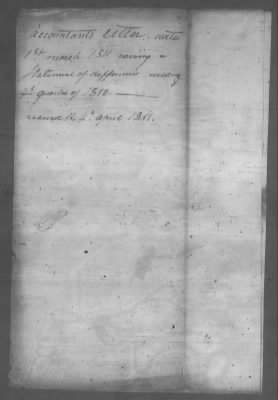 Accountants Letter. date
1st march 1811 covering a
Statement of differences
4th quarter of 1810
received the 4th april 1811.